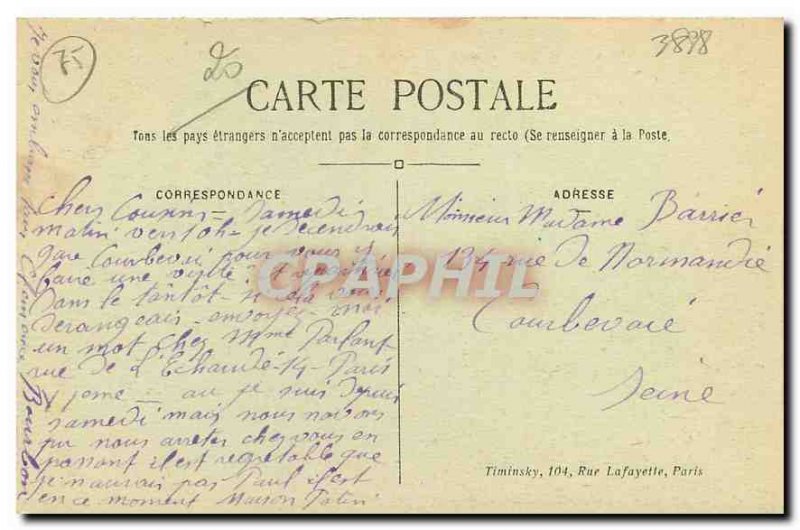 75
20
3898
CARTE POSTALE
Tous les pays étrangers n'acceptent pas la correspondance au recto (Se renseigner à la Poste.
CORRESPONDANCE
Chers Cousins = Samedi
matin vers 10h - je decendrai
gare Courbevoi pour vous y
faire une visite
Dans le tantôt - si
derangeais - envoyez - moi
un mot chez Mme Parfant
rue de l'Echaudé - 14 - Paris
je suis depuis
samedi mais nous navons
pu nous arreter chez vous en
passant il est regretable que
je naurais pas Paul il est
en ce moment Maison
Je vous embrasse
Bourbon
ADRESSE
Monsieur Madame Barrier
134 rue de Normandie
Courbevoie
Seine
CPAPHIL
Timinsky, 104, Rue Lafayette, Paris